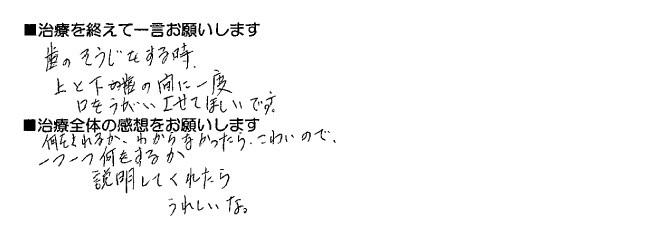 ■治療を終えて一言お願いします
歯のそうじをする時、
上と下の歯の間に一度
口をうがいさせてほしいです。
■治療全体の感想をお願いします
何をされるか、わからなかったら、こわいので、
一つ一つ何をするか
説明してくれたら
うれしいな。